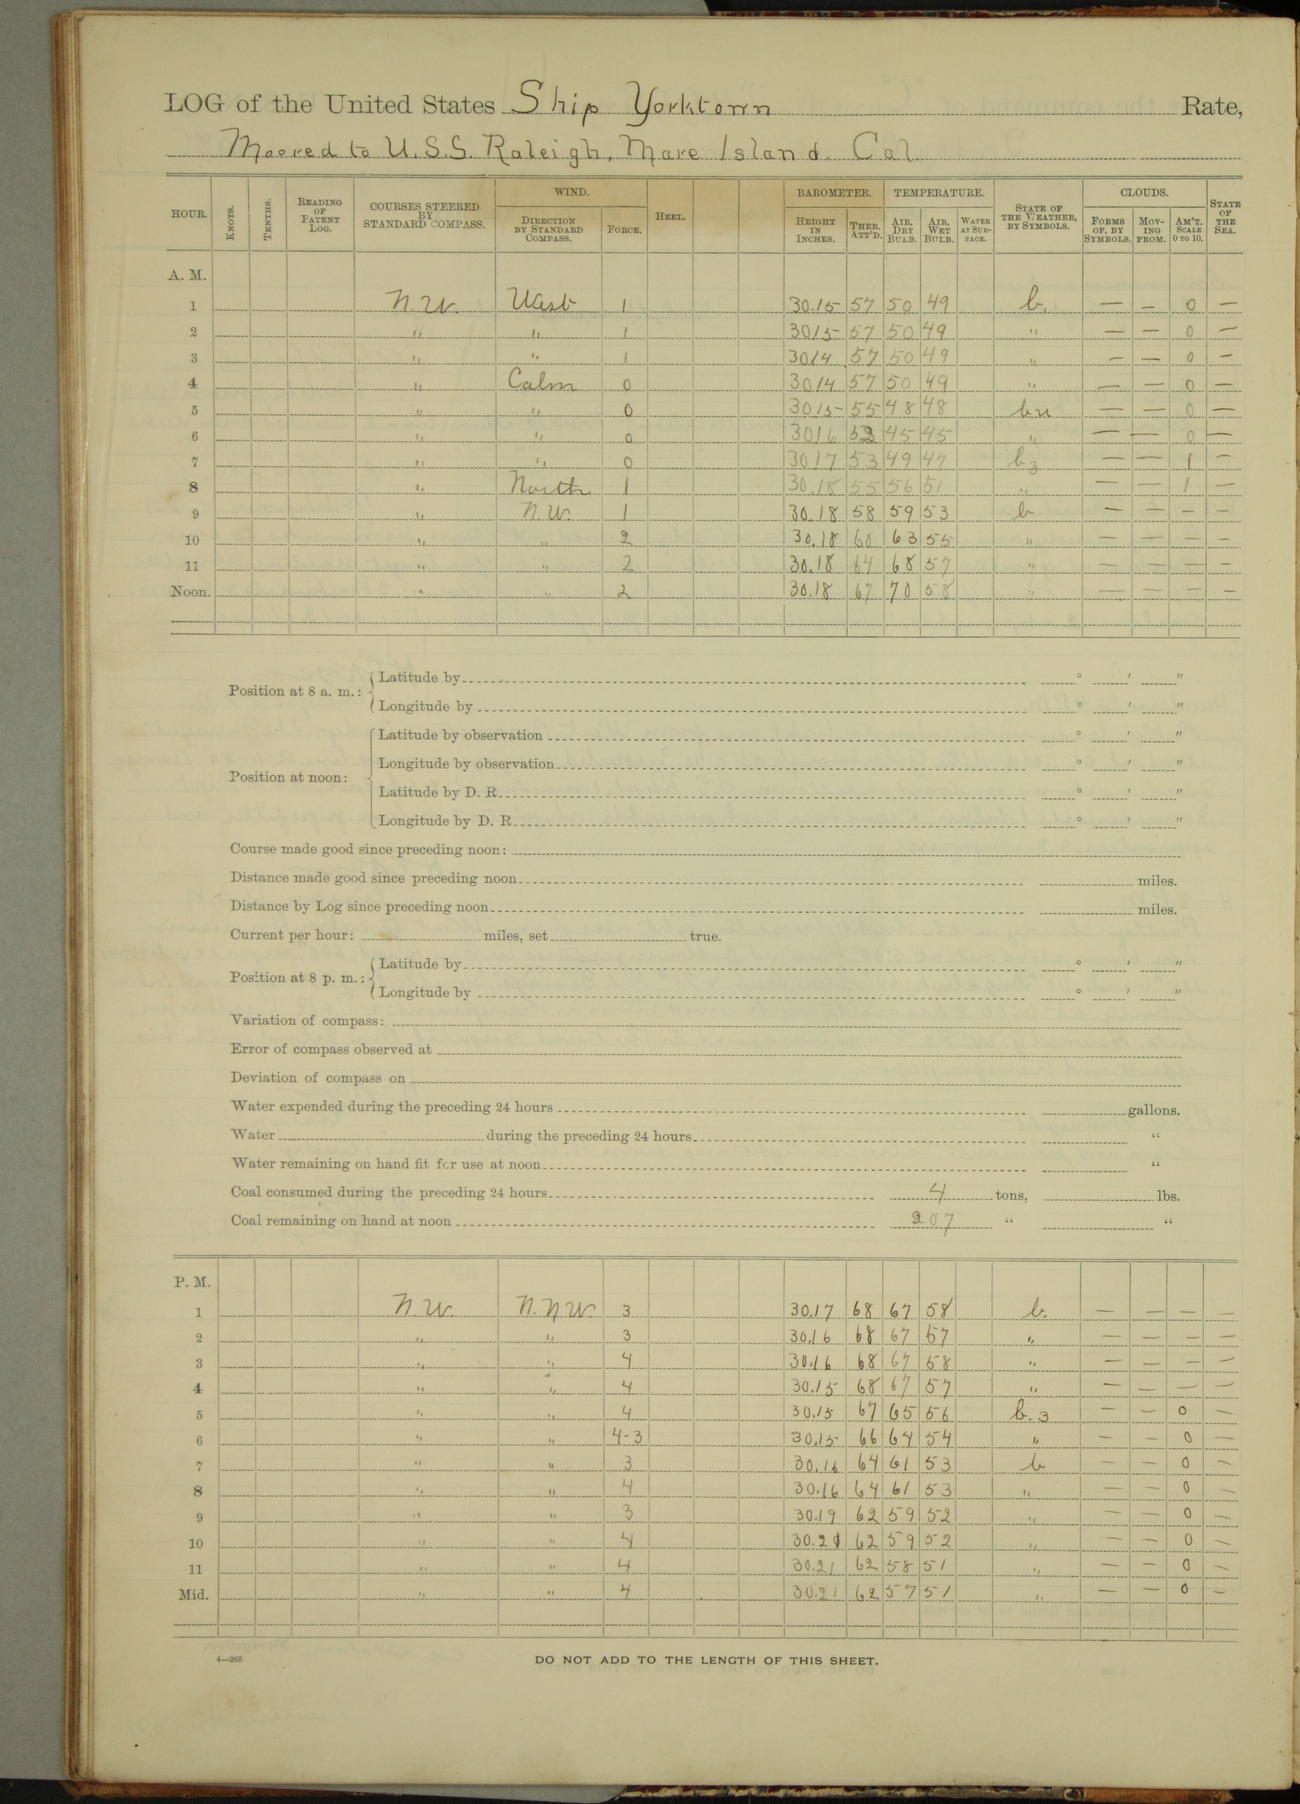 LOG of the United States Ship Yorktown Rate,
Moored to U.S.S. Raleigh, Mare Island. Cal.
HOUR. KNOTS. TENTHS. READING OF PATENT LOG. COURSES STEERED BY STANDARD COMPASS. WIND. DIRECTION BY STANDARD COMPASS. FORCE. HEEL. BAROMETER. HEIGHT IN INCHES. THER. ATT'D. TEMPERATURE. AIR, DRY BULB. AIR, WET BULB. WATER AT SURFACE. STATE OF THE WEATHER, BY SYMBOLS. CLOUDS. FORMS OF, BY SYMBOLS. MOVING FROM. AM'T. SCALE 0 TO 10. STATE OF THE SEA.
A. M.
1 N.W. West 1 30.15 57 50 49 b. — — 0 —
2 " " 1 3015 57 50 49 " — — 0 —
3 " " 1 3014 57 50 49 " — — 0 —
4 " Calm 0 3014 57 50 49 " — — 0 —
5 " " 0 3015 55 48 48 — — 0 —
6 " " 0 3016 53 45 45 " — — 0 —
7 " " 0 3017 53 49 47 bz — — 1 —
8 " North 1 30.18 55 56 51 " — — 1 —
9 " N.W. 1 30.18 58 59 53 b — — — —
10 " " 2 30.18 60 63 55 " — — — —
11 " " 2 30.18 64 68 57 " — — — —
Noon. " " 2 30.18 67 70 58 " — — — —
Position at 8 a. m.: Latitude by ° ' "
Longitude by ° ' "
Position at noon: Latitude by observation ° ' "
Longitude by observation ° ' "
Latitude by D. R. ° ' "
Longitude by D. R. ° ' "
Course made good since preceding noon:
Distance made good since preceding noon miles.
Distance by Log since preceding noon miles.
Current per hour: miles, set true.
Position at 8 p. m.: Latitude by ° ' "
Longitude by ° ' "
Variation of compass:
Error of compass observed at
Deviation of compass on
Water expended during the preceding 24 hours gallons.
Water during the preceding 24 hours "
Water remaining on hand fit for use at noon "
Coal consumed during the preceding 24 hours 4 tons, lbs.
Coal remaining on hand at noon 207 " "
P. M.
1 N.W. N.N.W. 3 30.17 68 67 58 b. — — — —
2 " " 3 30.16 68 67 57 " — — — —
3 " " 4 30.16 68 67 58 " — — — —
4 " " 4 30.15 68 67 57 " — — — —
5 " " 4 30.15 67 65 56 b.z — — 0 —
6 " " 4-3 30.15 66 64 54 " — — 0 —
7 " " 3 30.16 64 61 53 b — — 0 —
8 " " 4 30.16 64 61 53 " — — 0 —
9 " " 3 30.19 62 59 52 " — — 0 —
10 " " 4 30.21 62 59 52 " — — 0 —
11 " " 4 30.21 62 58 51 " — — 0 —
Mid. " " 4 30.21 62 57 51 " — — 0 —
4—265 DO NOT ADD TO THE LENGTH OF THIS SHEET.